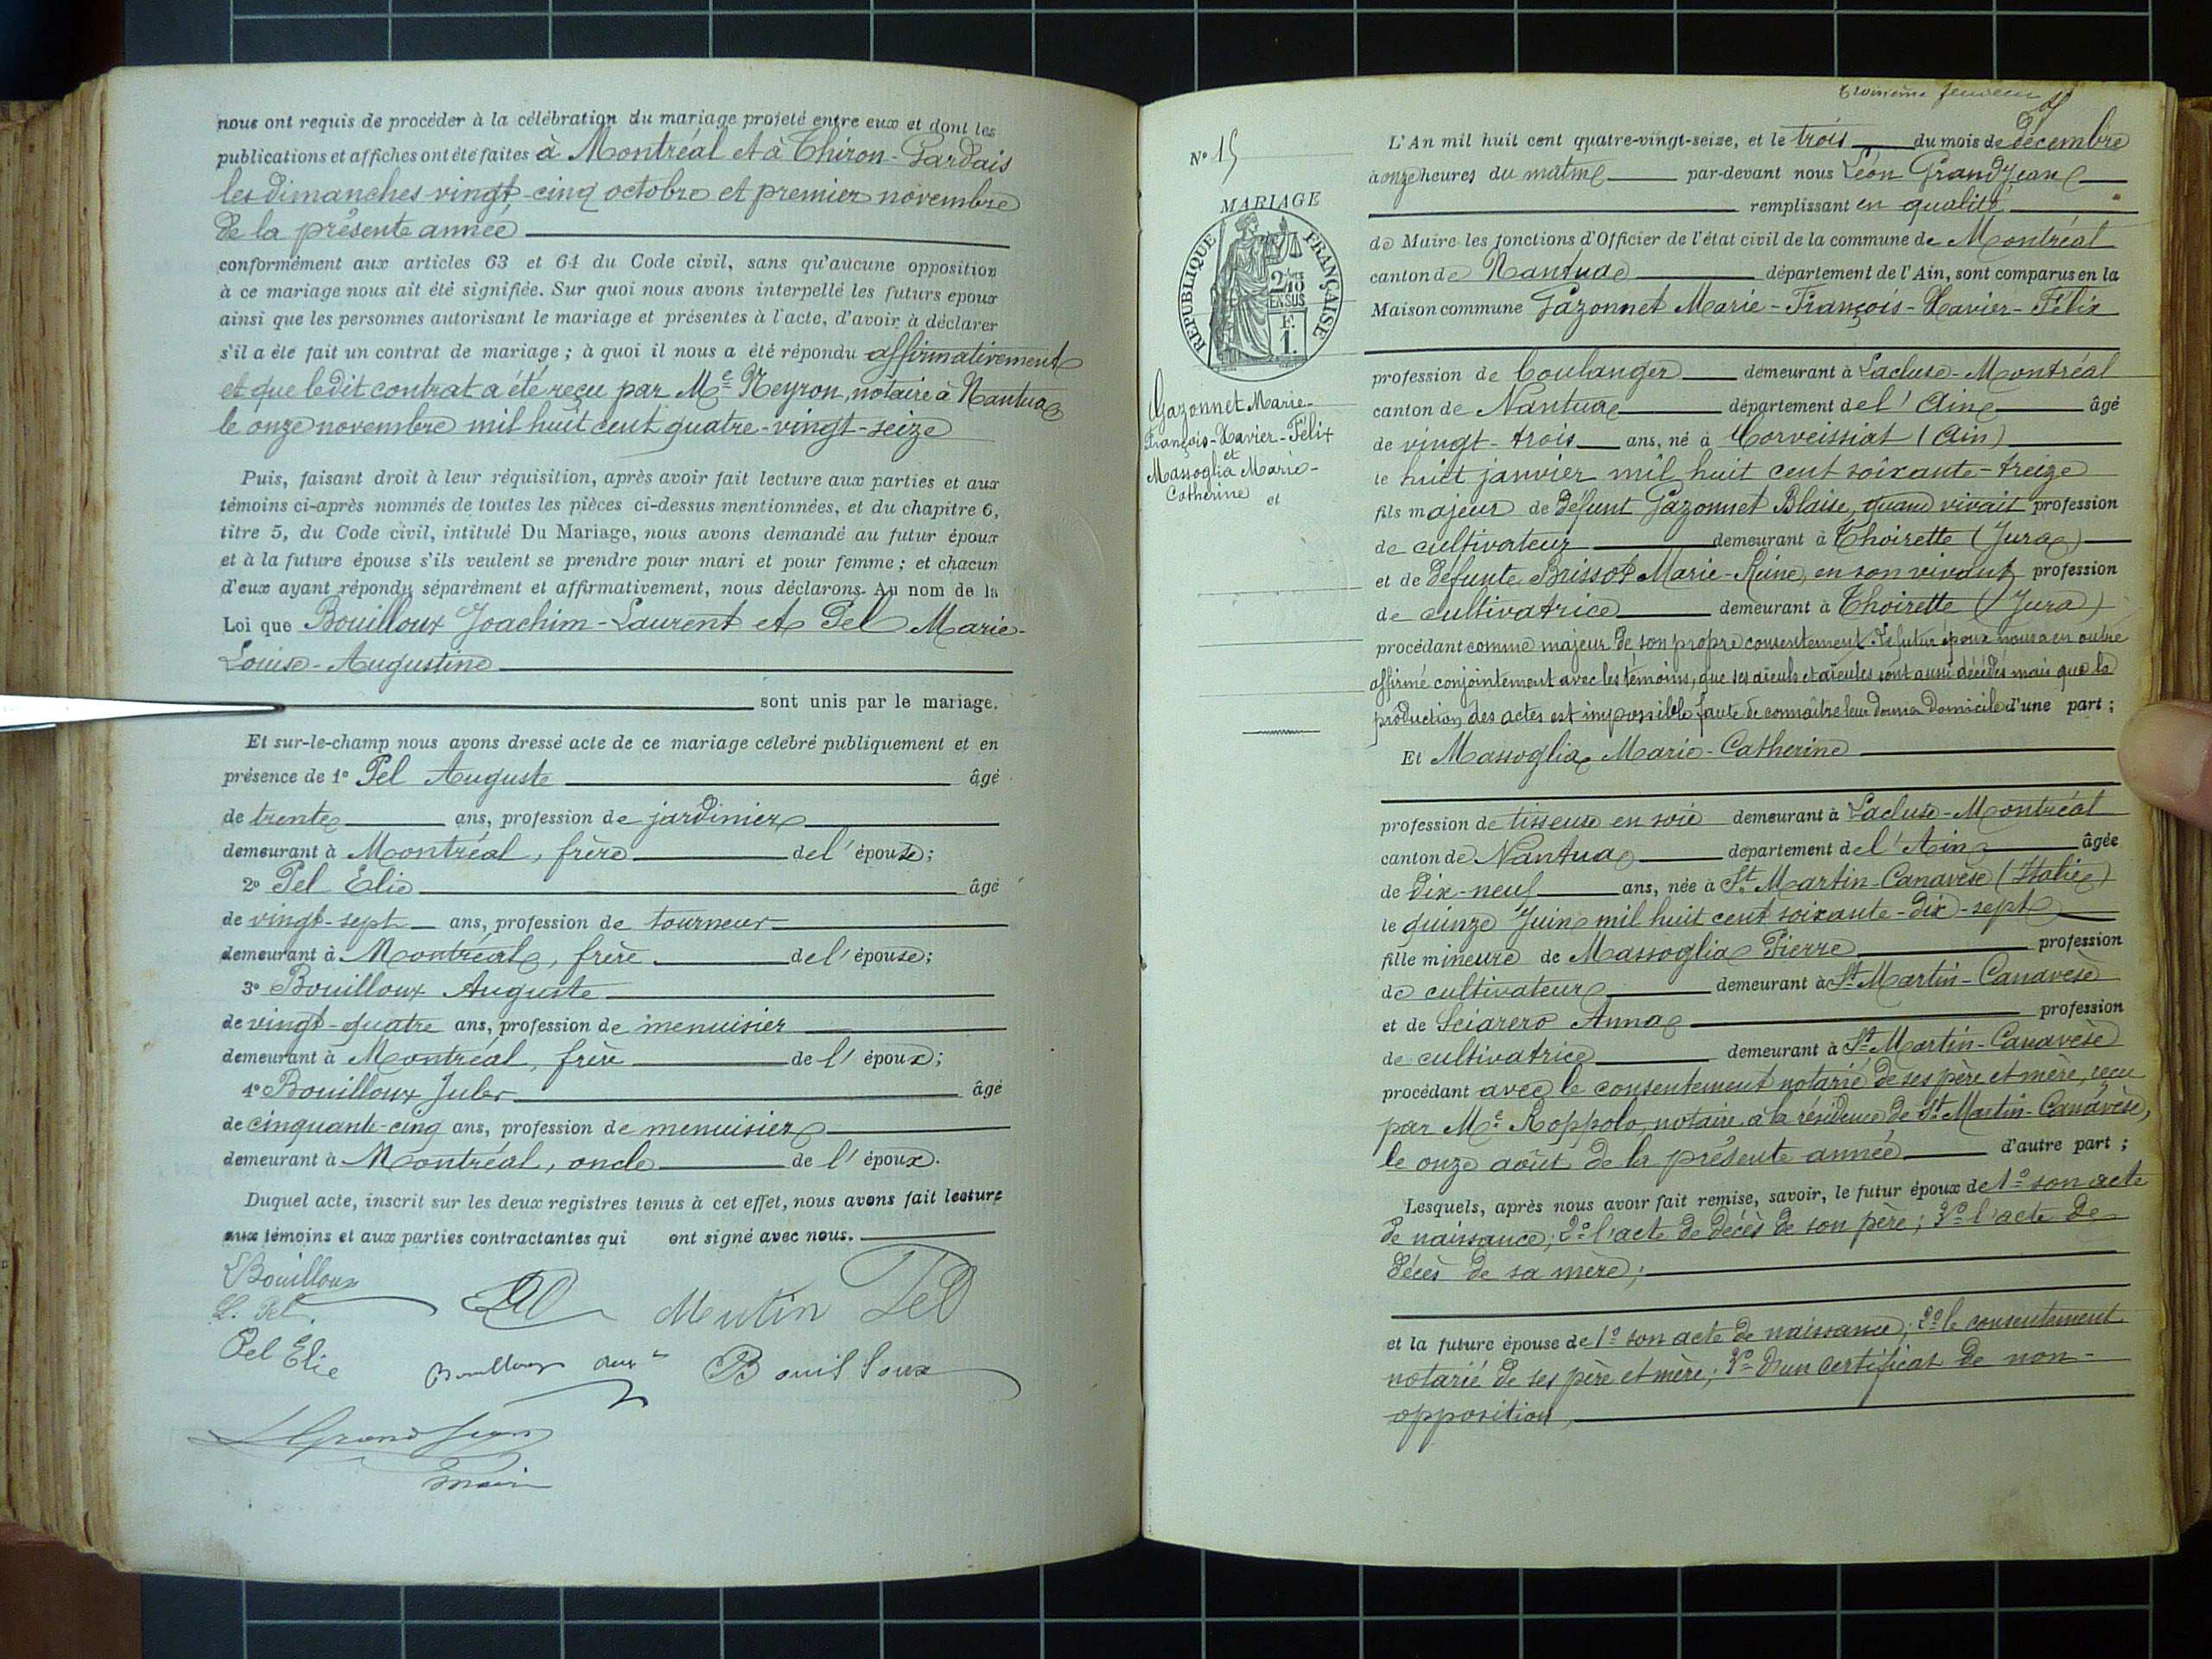 nous ont requis de procéder à la célébration du mariage projeté entre eux et dont les
publications et affiches ont été faites à Montréal et à Thiron-Gardais
les dimanches vingt-cinq octobre et premier novembre
de la présente année
conformément aux articles 63 et 64 du Code civil, sans qu'aucune opposition
à ce mariage nous ait été signifiée. Sur quoi nous avons interpellé les futurs epoux
ainsi que les personnes autorisant le mariage et présentes à l'acte, d'avoir à déclarer
s'il a été fait un contrat de mariage ; à quoi il nous a été répondu affirmativement
et que ledit contrat a été reçu par Me Neyron, notaire à Nantua
le onze novembre mil huit cent quatre-vingt-seize
Puis, faisant droit à leur réquisition, après avoir fait lecture aux parties et aux
témoins ci-après nommés de toutes les pièces ci-dessus mentionnées, et du chapitre 6,
titre 5, du Code civil, intitulé Du Mariage, nous avons demandé au futur époux
et à la future épouse s'ils veulent se prendre pour mari et pour femme ; et chacun
d'eux ayant répondu séparément et affirmativement, nous déclarons. Au nom de la
Loi que Bouilloux Joachim-Laurent et Pel Marie-
Louise-Augustine
sont unis par le mariage.
Et sur-le-champ nous avons dressé acte de ce mariage célébré publiquement et en
présence de 1° Pel Auguste âgé
de trente ans, profession de jardinier
demeurant à Montréal, frère de l'épouse;
2° Pel Elie âgé
de vingt-sept ans, profession de tourneur
demeurant à Montréal, frère de l'épouse;
3° Bouilloux Auguste
de vingt-quatre ans, profession de menuisier
demeurant à Montréal, frère de l'époux;
4° Bouilloux Jules âgé
de cinquante-cinq ans, profession de menuisier
demeurant à Montréal, oncle de l'époux.
Duquel acte, inscrit sur les deux registres tenus à cet effet, nous avons fait lecture
aux témoins et aux parties contractantes qui ont signé avec nous.
Bouilloux
L. Pel
Mentin Pel
Pel Elie
Bouilloux
LGrandJean
maire
troisième
N° 15
MARIAGE
REPUBLIQUE FRANÇAISE
2/10 EN SUS
F. 1.
Gazonnet Marie-
François-Xavier-Félix
et
Massoglia Marie-
Catherine
et
L'An mil huit cent quatre-vingt-seize, et le trois du mois de décembre
à onze heures du matin par-devant nous Léon Grandjean
remplissant en qualité
de Maire les fonctions d'Officier de l'état civil de la commune de Montréal
canton de Nantua département de l'Ain, sont comparus en la
Maison commune Gazonnet Marie-François-Xavier-Félix
profession de boulanger demeurant à Lacluse-Montréal
canton de Nantua département de l'Ain âgé
de vingt-trois ans, né à Corveissiat (Ain)
le huit janvier mil huit cent soixante-treize
fils majeur de défunt Gazonnet Blaise, quand vivait profession
de cultivateur demeurant à Thoirette (Jura)
et de défunte Brissot Marie-Reine, en son vivant profession
de cultivatrice demeurant à Thoirette (Jura)
procédant comme majeur de son propre consentement. Le futur époux nous a en outre
affirmé conjointement avec les témoins, que ses aïeuls et aïeules sont aussi décédés mais que la
production des actes est impossible faute de connaître leur dernier domicile d'une part ;
Et Massoglia Marie-Catherine
profession de tisseuse en soie demeurant à Lacluse-Montréal
canton de Nantua département de l'Ain âgée
de dix-neuf ans, née à St Martin-Canavèse (Italie)
le quinze Juin mil huit cent soixante-dix-sept
fille mineure de Massoglia Pierre profession
de cultivateur demeurant à St Martin-Canavèse
et de Sciarero Anna profession
de cultivatrice demeurant à St Martin-Canavèse
procédant avec le consentement notarié de ses père et mère, reçu
par Me Roppolo, notaire à la résidence de St Martin-Canavèse,
le onze août de la présente année d'autre part ;
Lesquels, après nous avoir fait remise, savoir, le futur époux de 1° son acte
de naissance ; 2° l'acte de décès de son père ; 3° l'acte de
décès de sa mère ;
et la future épouse de 1° son acte de naissance ; 2° le consentement
notarié de ses père et mère ; 3° d'un certificat de non-
opposition,